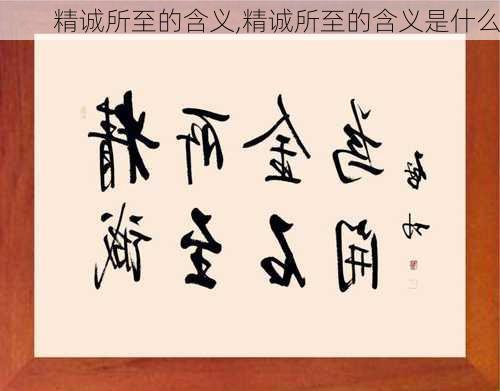 精诚所至的含义,精诚所至的含义是什么
精诚
所至
金石
为開
启功